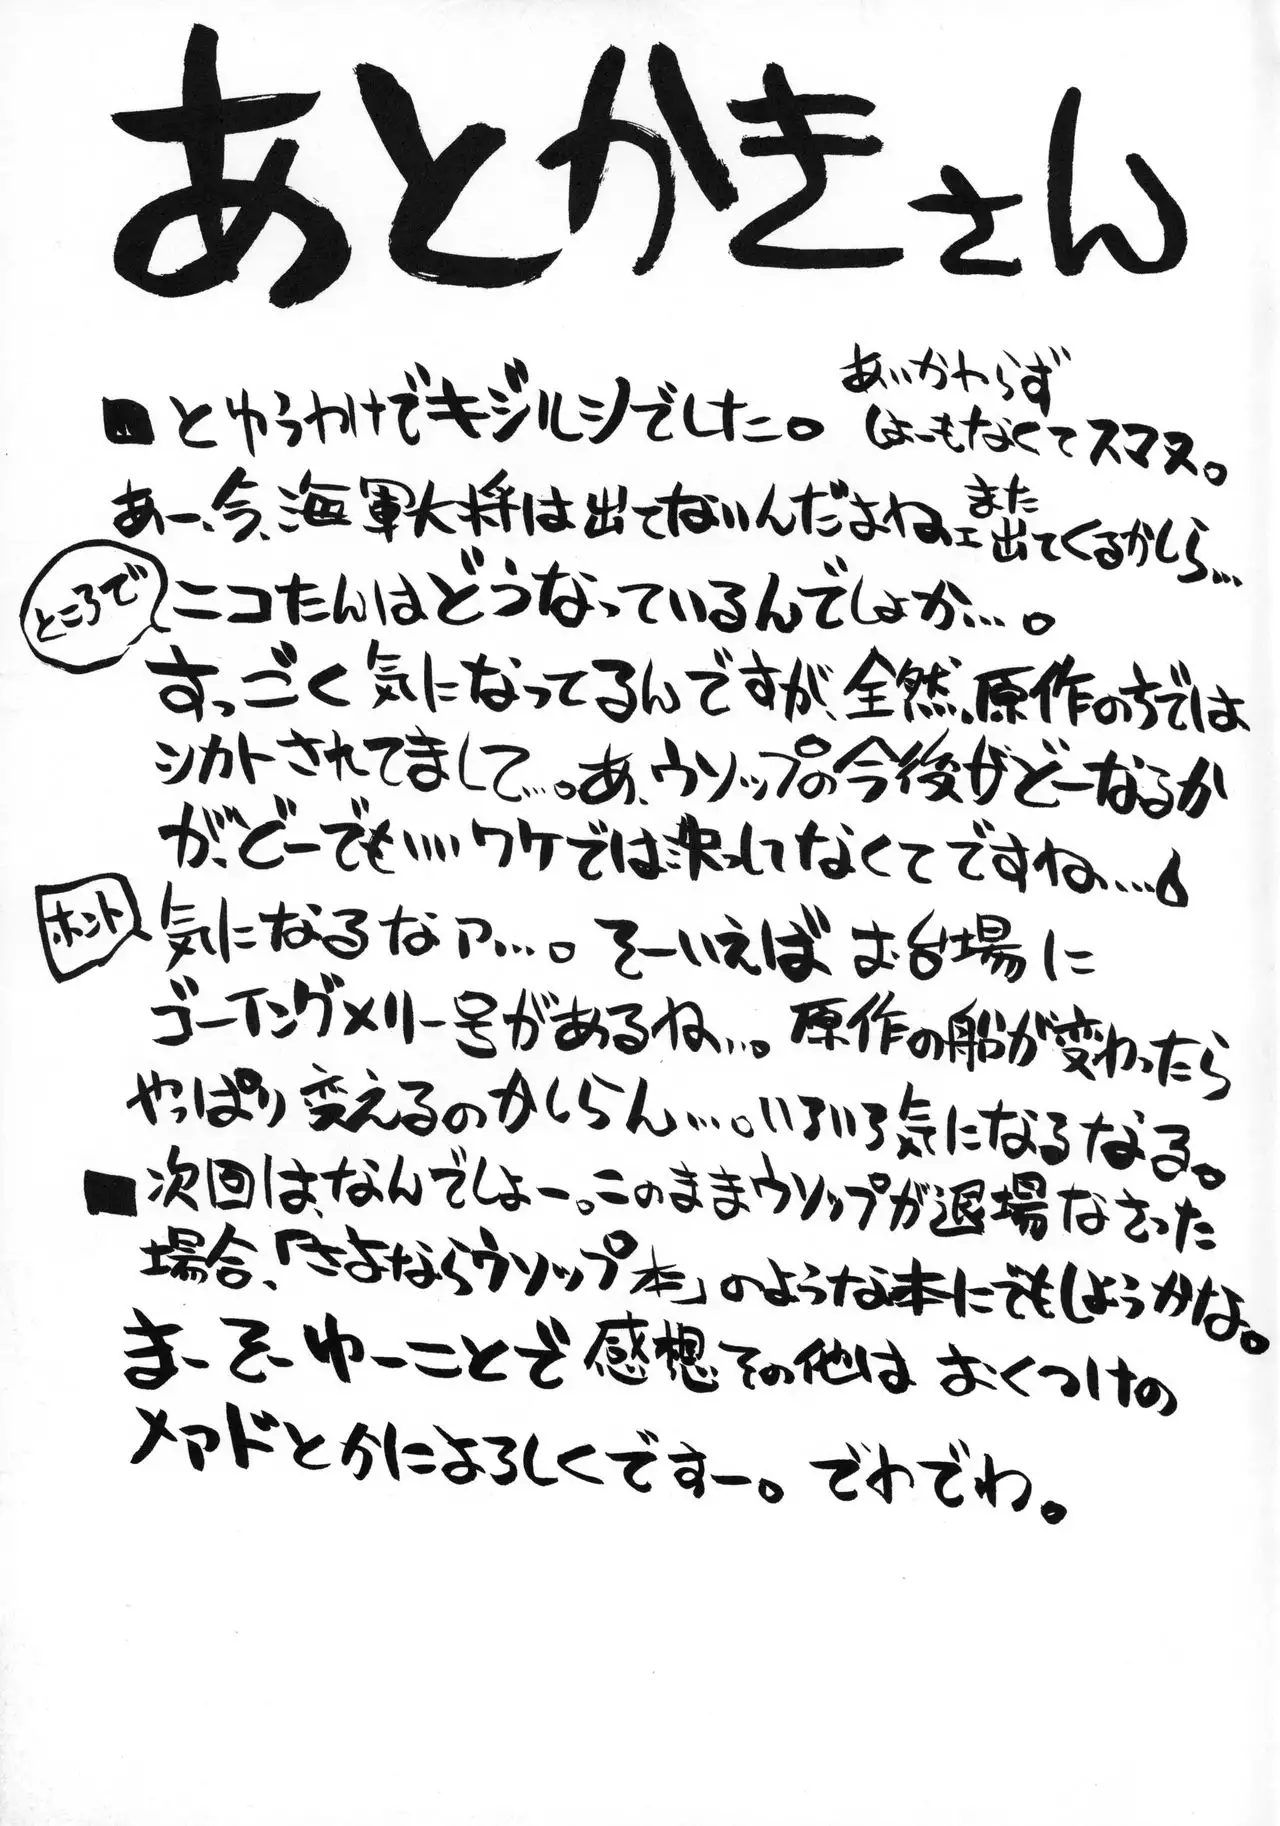 あとかきさん
■とゆうわけでキジルシでした。
あいかわらず
しょーもなくてスマヌ。
あー、今、海軍大将は出てないんだよねェ
また
出てくるかしら…
ところで
ニコたんはどうなっているんでしょか…。
すっごく気になってるんですが、全然、原作のちでは
シカトされてまして…。あ、ウソップの今後がどーなるか
が、どーでもいいワケでは決してなくてですね…。
ホント
気になるなァ…。そーいえばお台場に
ゴーイングメリー号があるね…。原作の船が変わったら
やっぱり変えるのかしらん…。いろいろ気になるなる。
■次回は、なんでしょー。このままウソップが退場なさった
場合、「さよならウソップ本」のような本にでもしようかな。
まーそーゆーことで感想その他はおくつけの
メアドとかによろしくですー。でわでわ。